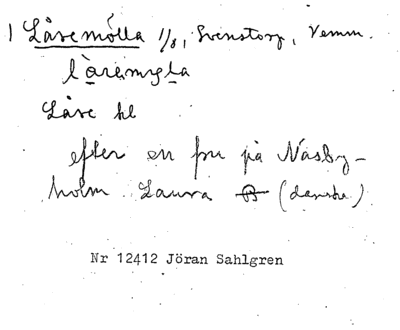 1 Låremölla 1/8, Svenstorp, Vemm.
låremyla
Låre hl
efter en fru på Näsby-
holm Laura (danska)
Nr 12412 Jöran Sahlgren